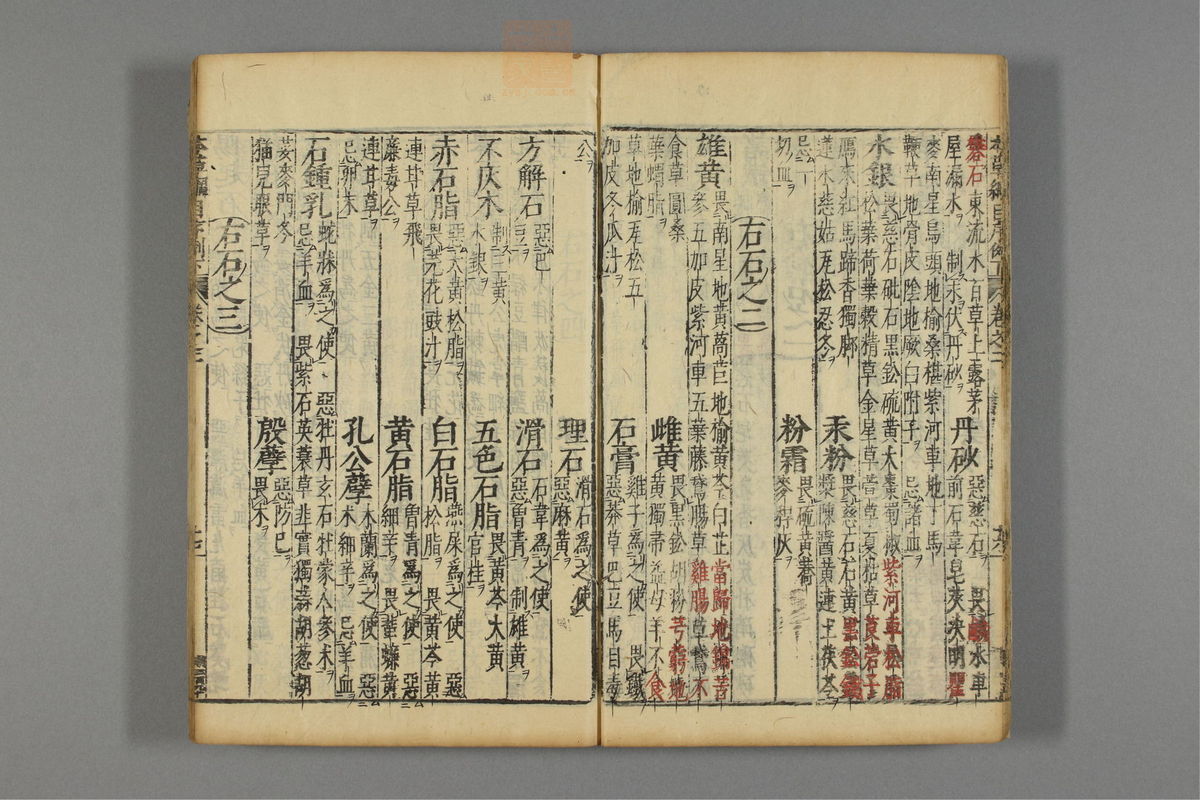 本草綱目序例 卷之二
礬石東流水百草上露茅
屋漏水 制汞伏丹砂
丹砂 惡慈石 畏鹹水車
前石韋皂莢決明瞿
麥南星烏頭地榆桑椹紫河車地丁馬
鞭草地骨皮陰地厥白附子 忌諸血
水銀 畏慈石砒石黑鉛硫黃大棗蜀椒紫河車松脂
松葉荷葉穀精草金星草萱草夏枯草莨菪子
鴈來紅馬蹄香獨脚
蓮水慈姑瓦松忍冬
汞粉 畏慈石石黃黑鉛鐵
漿陳醬黃連土茯苓
忌一
切血
粉霜 畏硫黃蕎
麥稈灰
右石之二
雄黃 畏南星地黃萵苣地榆黃芩白芷當歸地錦苦
參五加皮紫河車五葉藤鵞腸草雞腸草鵞不
食草圓桑
葉蝟脂
雌黃 畏黑鉛胡粉芎藭地
黃獨帚益母羊不食
草地榆瓦松五
加皮冬瓜汁
石膏 雞子為之使 畏鐵
惡莽草巴豆馬目毒
公
理石 滑石為之使
惡麻黃
方解石 惡巴
豆
滑石 石韋為之使
惡曾青 制雄黃
不灰木 制三黃
水銀
五色石脂 畏黃芩大黃
官桂
赤石脂 惡大黃松脂
畏芫花豉汁
白石脂 燕屎為之使 惡
松脂 畏黃芩黃
連甘草飛
廉毒公
黃石脂 曾青為之使 惡
細辛 畏蜚蠊黃
連甘草
忌卵味
孔公孽 木蘭為之使 惡
朮細辛 忌羊血
石鍾乳 蛇牀為之使 惡牡丹玄石牡蒙人參朮
忌羊血 畏紫石英蘘草韭實獨蒜胡葱胡
荽麥門冬
猫兒眼草
殷孽 惡防己
畏朮
右石之三